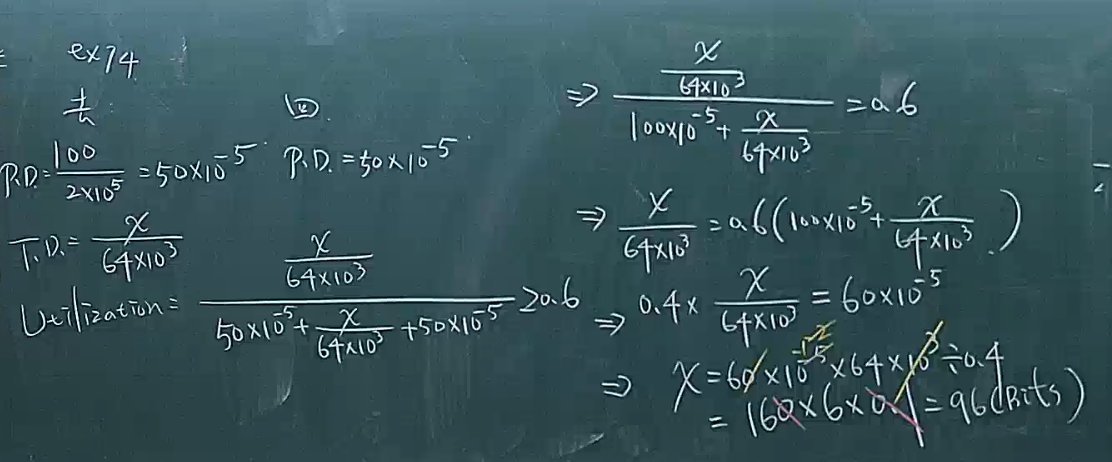 ex74
去 回
P.D.=100/(2×10⁵)=50×10⁻⁵ P.D.=50×10⁻⁵
T.D.=x/(64×10³)
Utilization=(x/(64×10³))/(50×10⁻⁵+x/(64×10³)+50×10⁻⁵)≥0.6
⇒(x/(64×10³))/(100×10⁻⁵+x/(64×10³))=0.6
⇒x/(64×10³)=0.6(100×10⁻⁵+x/(64×10³))
⇒0.4×x/(64×10³)=60×10⁻⁵
⇒x=60×10⁻⁵×64×10³÷0.4
=160×6×0.1=96(Bits)